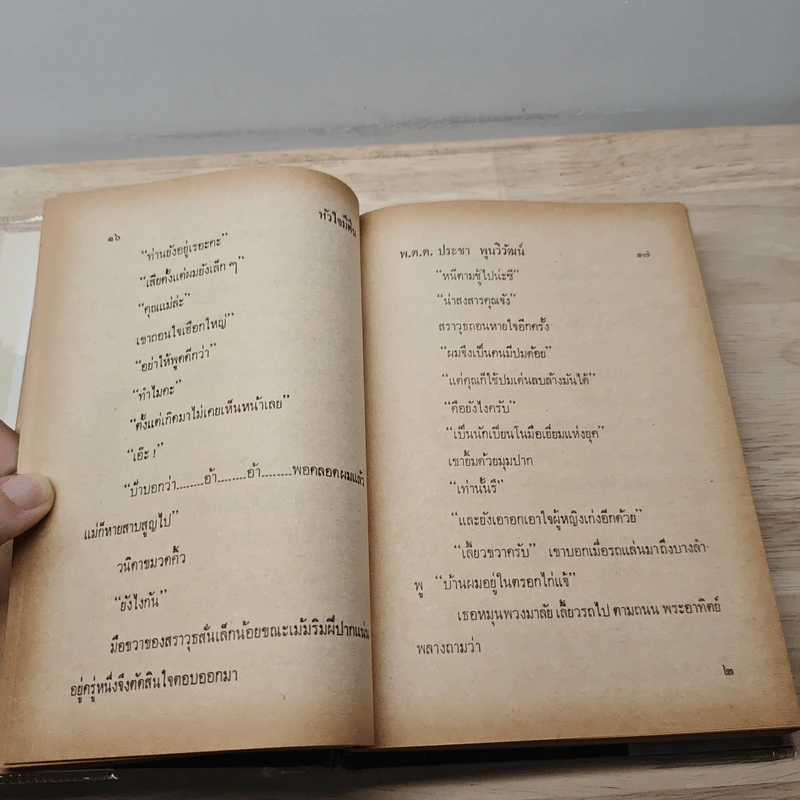 ๑๖
หัวใจมีตีน
“ท่านยังอยู่เรอะคะ”
“เสียตั้งแต่ผมยังเล็ก ๆ”
“คุณแม่ล่ะ”
เขาถอนใจเฮือกใหญ่”
“อย่าให้พูดดีกว่า”
“ทำไมคะ”
“ตั้งแต่เกิดมาไม่เคยเห็นหน้าเลย”
“เอ๊ะ !
“ป้าบอกว่า........อ้า........อ้า........พอคลอดผมแล้ว
แม่ก็หายสาบสูญไป”
วนิดาขมวดคิ้ว
“ยังไงกัน”
มือขวาของสราวุธสั่นเล็กน้อยขณะเม้มริมฝีปากแน่น
อยู่ครู่หนึ่งจึงตัดสินใจตอบออกมา
พ.ต.ต. ประชา พูนวิวัฒน์
๑๗
“หนีตามชู้ไปน่ะซี”
“น่าสงสารคุณจัง”
สราวุธถอนหายใจอีกครั้ง
“ผมจึงเป็นคนมีปมด้อย”
“แต่คุณก็ใช้ปมเด่นลบล้างมันได้”
“คือยังไงครับ”
“เป็นนักเปียนโนมือเยี่ยมแห่งยุค”
เขายิ้มด้วยมุมปาก
“เท่านั้นรึ”
“และยังเอาอกเอาใจผู้หญิงเก่งอีกด้วย”
“เลี้ยวขวาครับ” เขาบอกเมื่อรถแล่นมาถึงบางลำ-
พู “บ้านผมอยู่ในตรอกไก่แจ้”
เธอหมุนพวงมาลัย เลี้ยวรถไป ตามถนน พระอาทิตย์
พลางถามว่า
๒